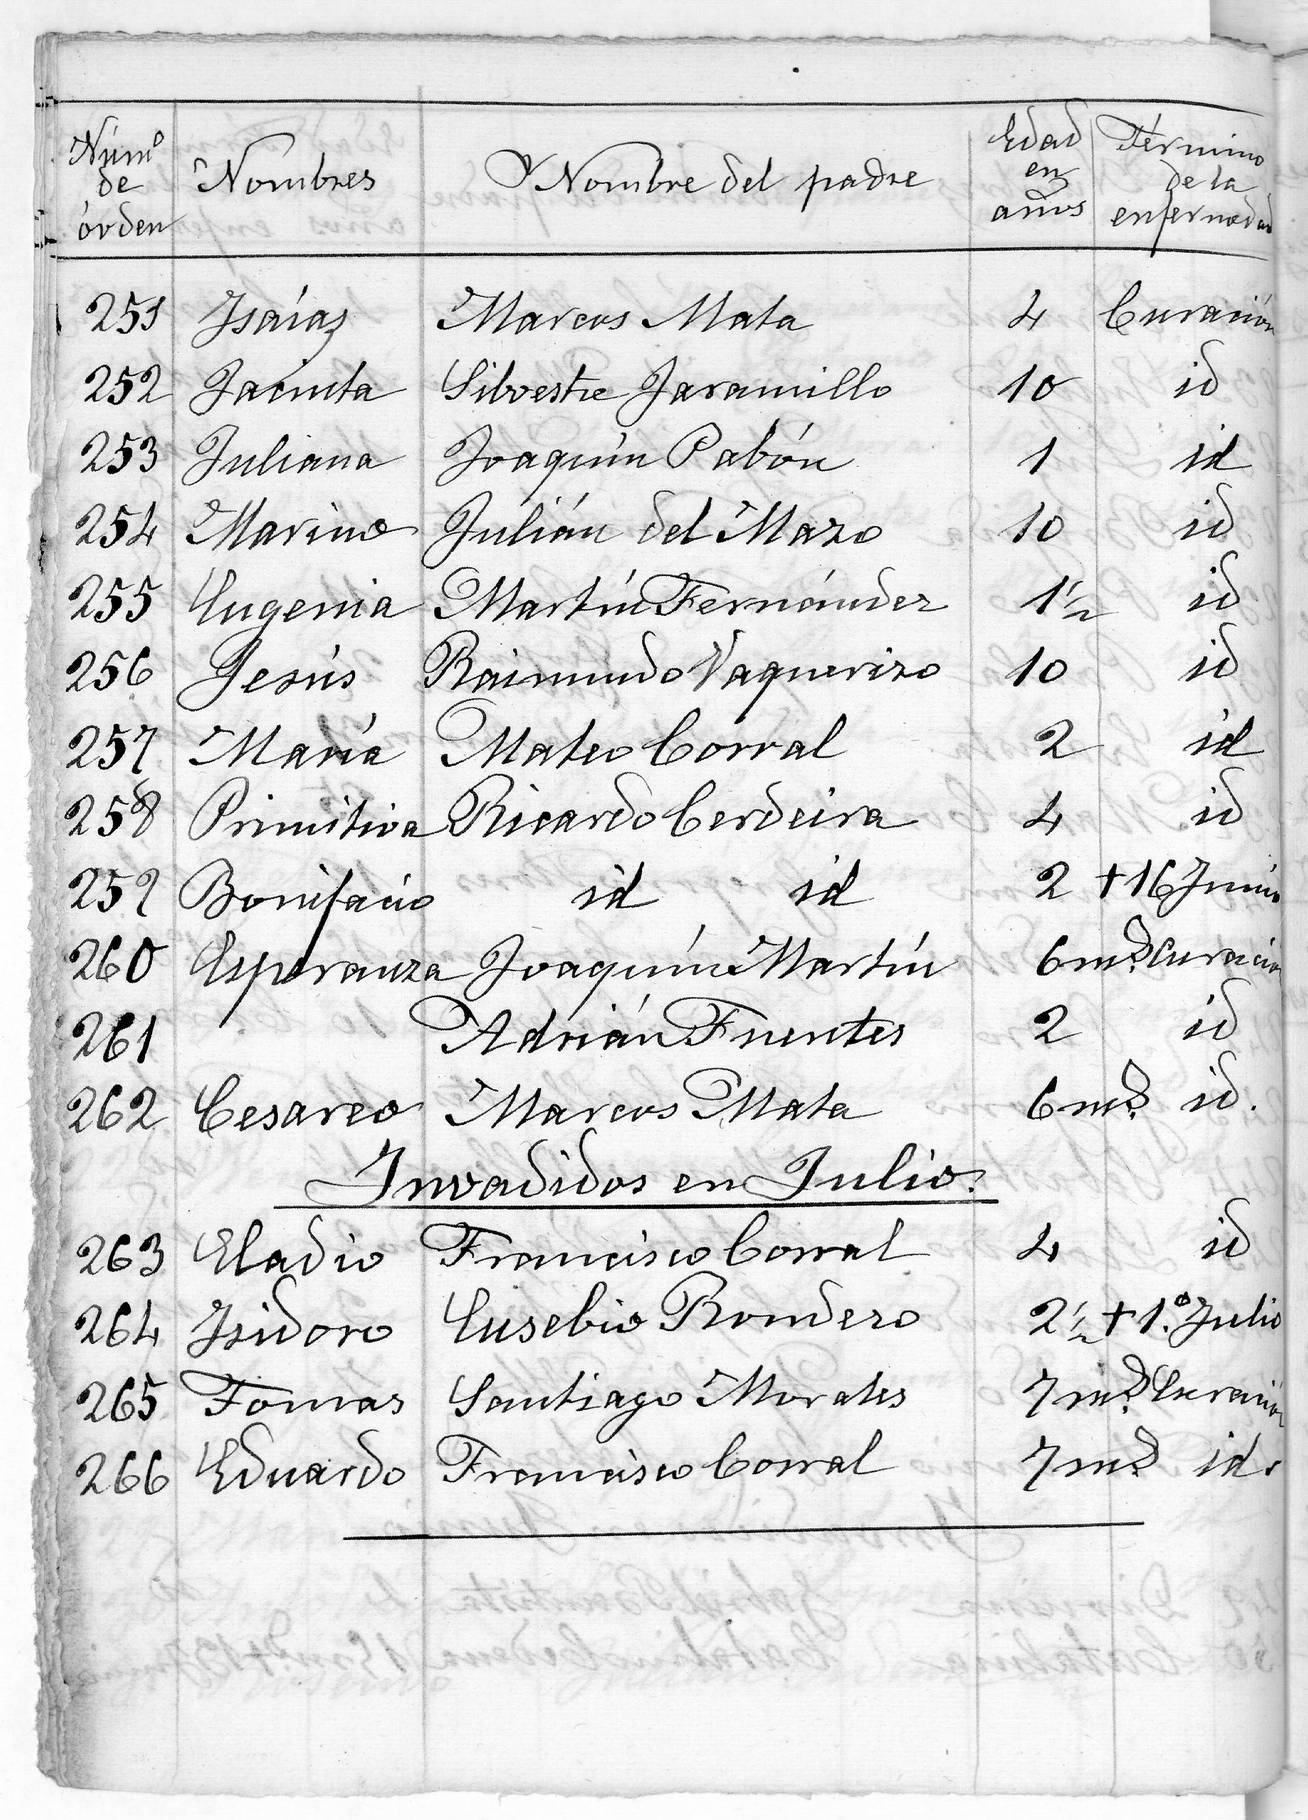 Núm.º de órden | Nombres | Nombre del padre | Edad en años | Término de la enfermedad
251 Isaías Marcos Mata 4 Curación
252 Jacinta Silvestre Jaramillo 10 id
253 Juliana Joaquín Pabón 1 id
254 Marino Julián del Mazo 10 id
255 Eugenia Martín Fernández 1 1/2 id
256 Jesús Raimundo Vaquerizo 10 id
257 María Mateo Corral 2 id
258 Primitiva Ricardo Cerdeira 4 id
259 Bonifacio id id 2 † 16 Junio
260 Esperanza Joaquín Martín 6 m.s Curación
261 Adrián Fuentes 2 id
262 Cesareo Marcos Mata 6 m.s id.
Invadidos en Julio.
263 Eladio Francisco Corral 4 id
264 Isidoro Eusebio Rondero 2 1/2 † 1.º Julio
265 Tomas Santiago Morales 7 m.s Curación
266 Eduardo Francisco Corral 7 m.s id.